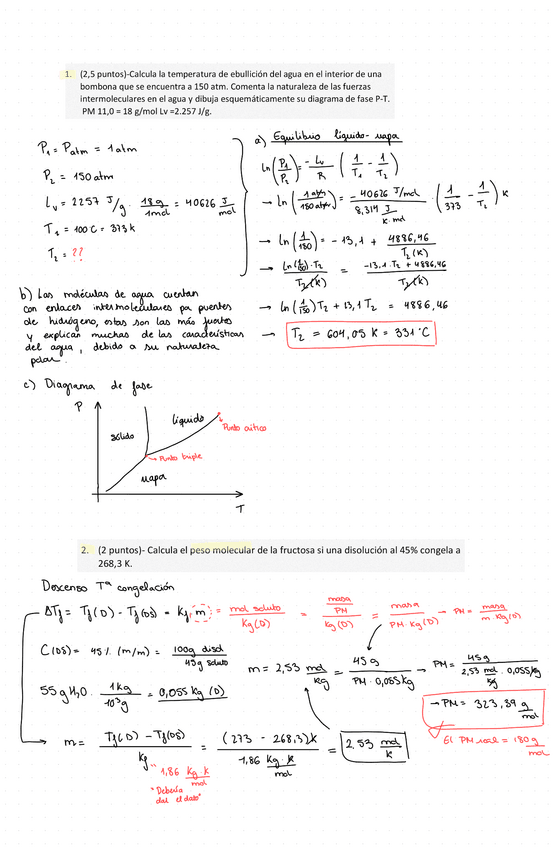 1. (2,5 puntos)-Calcula la temperatura de ebullición del agua en el interior de una
bombona que se encuentra a 150 atm. Comenta la naturaleza de las fuerzas
intermoleculares en el agua y dibuja esquemáticamente su diagrama de fase P-T.
PM 11,0 = 18 g/mol Lv =2.257 J/g.
P₁ = Patm = 1 atm
P₂ = 150 atm
Lv = 2257 J/g · 18 g / 1 mol = 40626 J/mol
T₁ = 100 C = 373 K
T₂ = ??
a) Equilibrio líquido-vapor
ln(P₁/P₂) = -Lv/R (1/T₁ - 1/T₂)
→ ln(1 atm/150 atm) = -40626 J/mol / 8,314 J/K·mol · (1/373 - 1/T₂) K
→ ln(1/150) = -13,1 + 4886,46/T₂(K)
→ ln(1/150)·T₂ / T₂(K) = -13,1·T₂ + 4886,46 / T₂(K)
→ ln(1/150)T₂ + 13,1 T₂ = 4886,46
→ T₂ = 604,05 K = 331 °C
b) Las moléculas de agua cuentan
con enlaces intermoleculares por puentes
de hidrógeno, estos son las más fuertes
y explican muchas de las características
del agua, debido a su naturaleza
polar.
c) Diagrama de fase
P
sólido
líquido
Punto crítico
Punto triple
vapor
T
2. (2 puntos)- Calcula el peso molecular de la fructosa si una disolución al 45% congela a
268,3 K.
Descenso Tª congelación
ΔTf = Tf(D) - Tf(DS) = Kf · m = mol soluto / Kg(D) = masa/PM / Kg(D) = masa / PM·Kg(D) → PM = masa / m·Kg(D)
C(DS) = 45% (m/m) = 100g disol / 45g soluto
m = 2,53 mol/Kg = 45 g / PM · 0,055 kg → PM = 45 g / 2,53 mol/kg · 0,055 kg
55 g H₂O · 1 Kg / 10³ g = 0,055 Kg (D)
→ PM = 323,39 g/mol
m = Tf(D) - Tf(DS) / Kf = (273 - 268,3) K / 1,86 Kg·K/mol = 2,53 mol/K
El PM real = 180 g/mol
1,86 Kg·K/mol
"Debería
dar el dato"